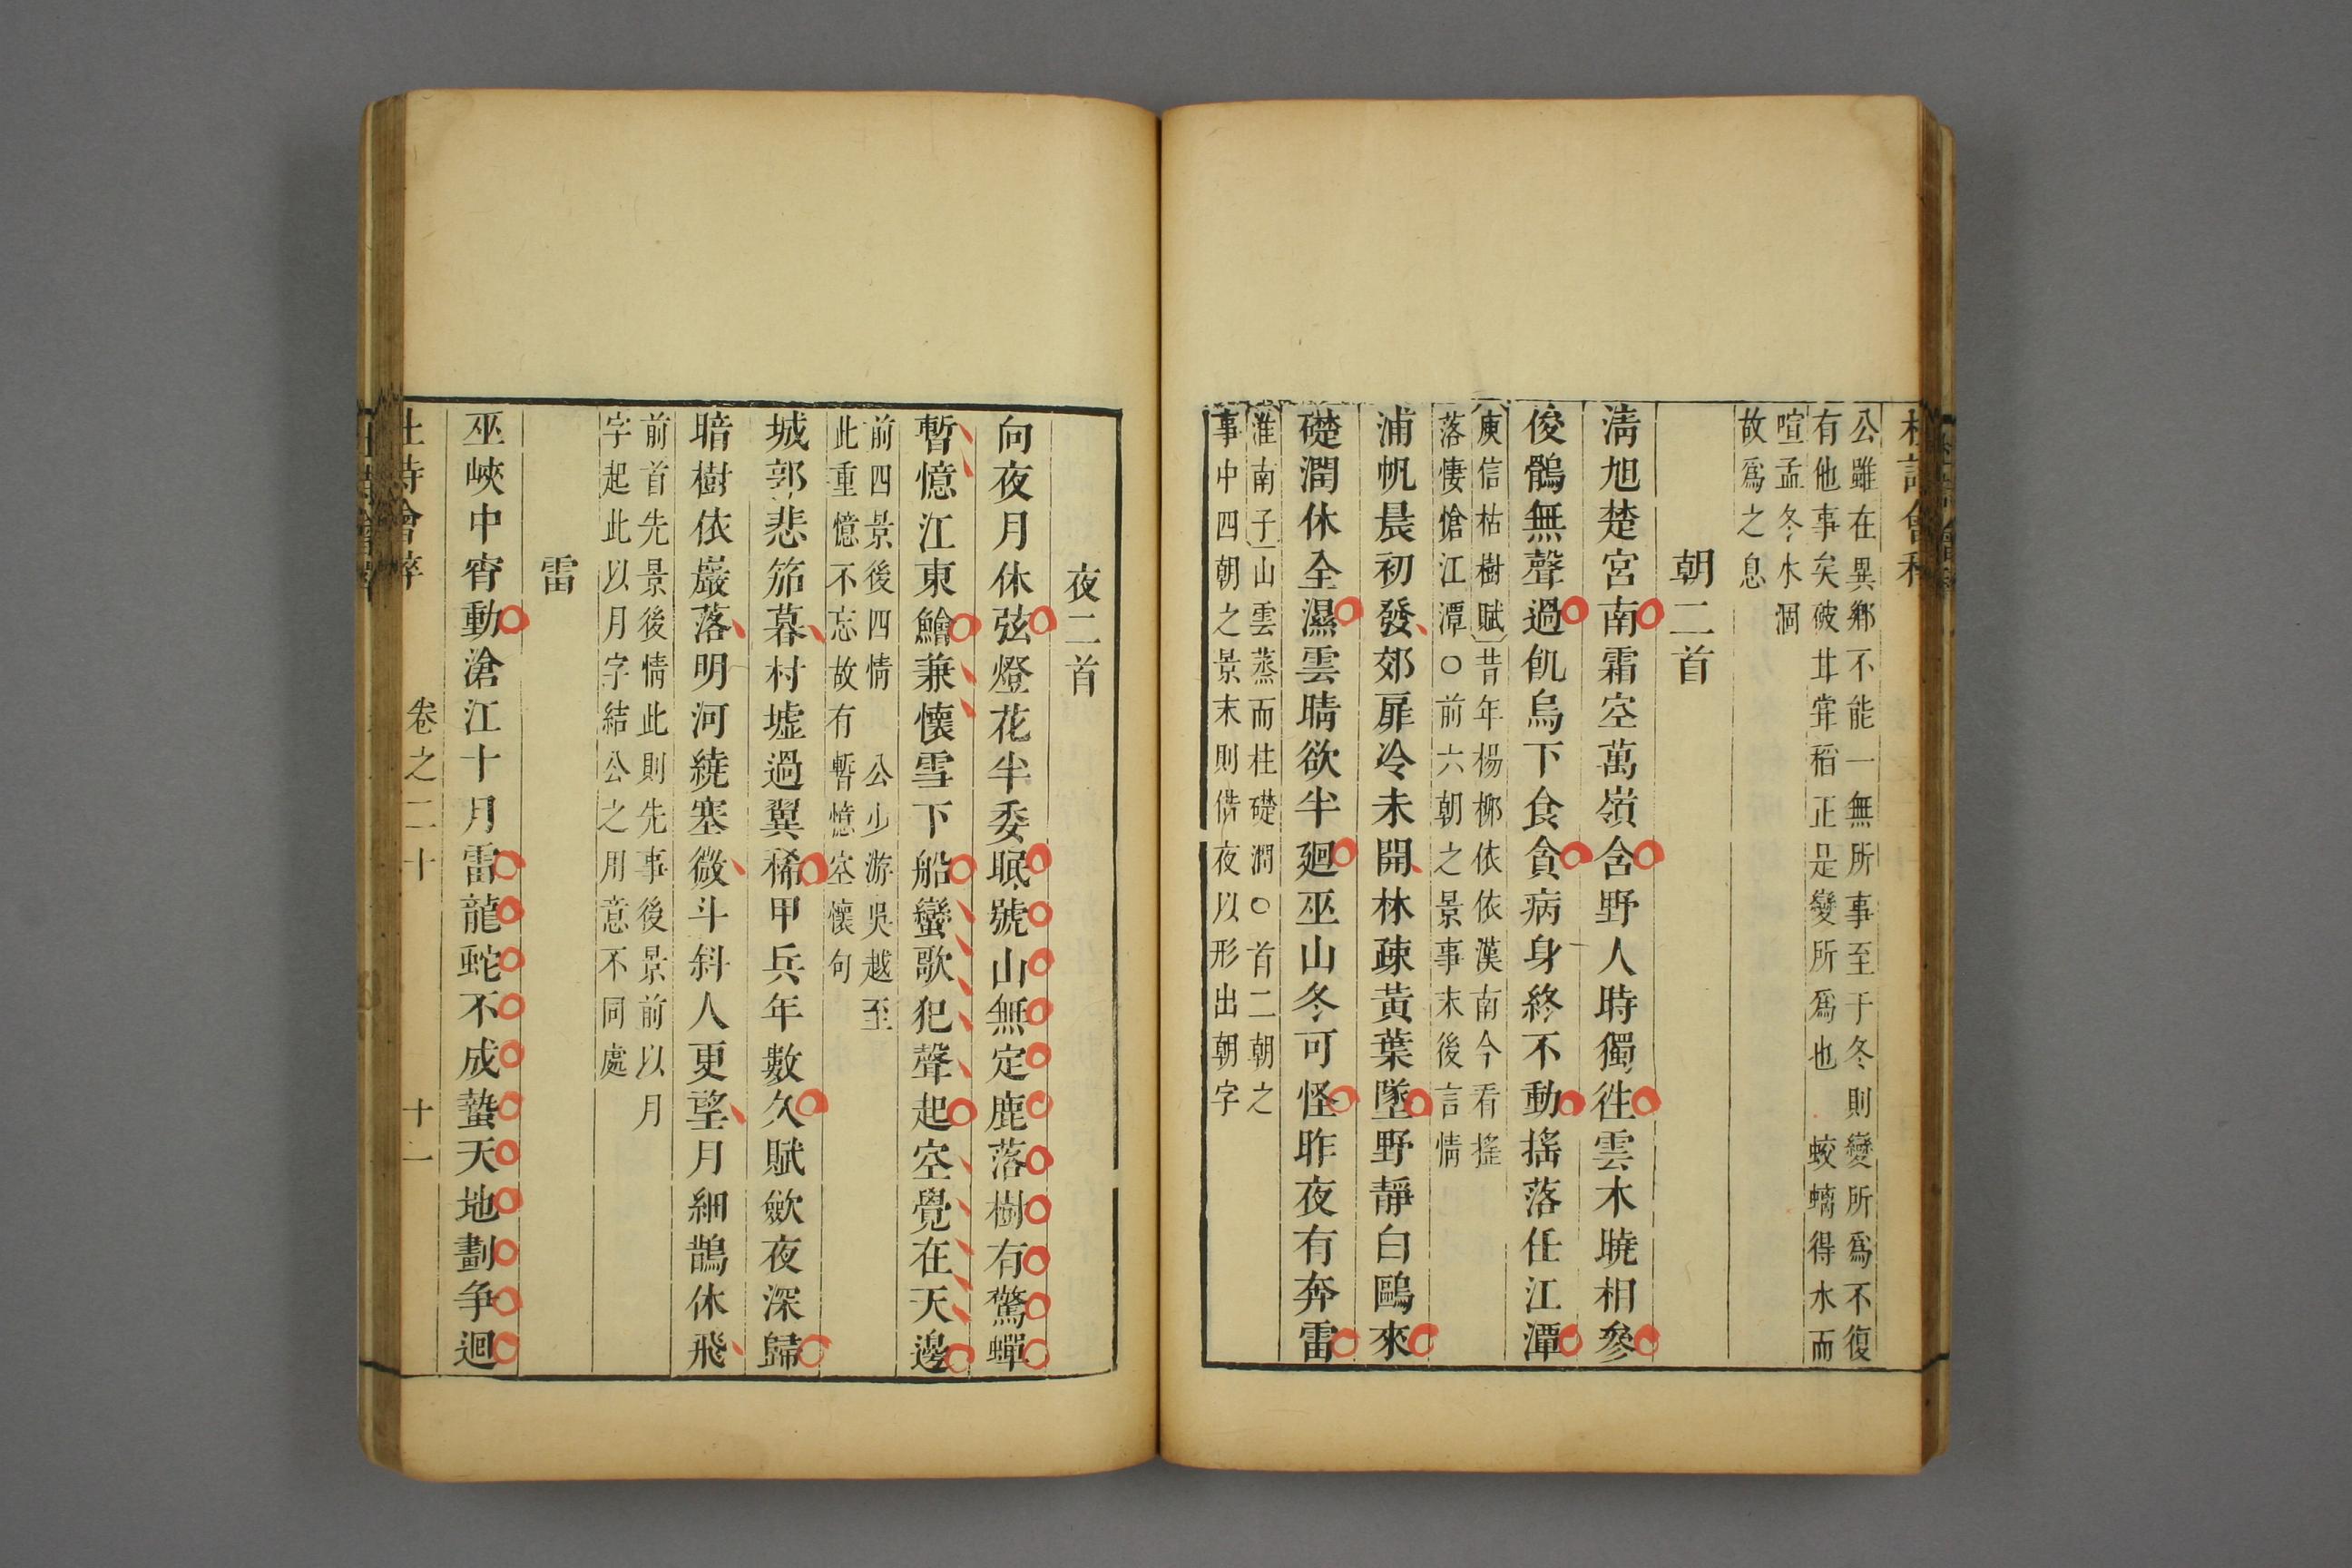 杜詩會稡
公雖在異鄉不能一無所事至于冬則變所爲不復
有他事矣破甘霜稻正是變所爲也 蛟螭得水而
喧孟冬水涸
故爲之息
朝二首
清旭楚宮南霜空萬嶺含野人時獨往雲木曉相參
俊鶻無聲過飢烏下食貪病身終不動搖落任江潭
庾信枯樹賦昔年楊柳依依漢南今看搖
落悽愴江潭○前六朝之景事末後言情
浦帆晨初發郊扉冷未開林疎黃葉墜野靜白鷗來
礎潤休全濕雲晴欲半廻巫山冬可怪昨夜有奔雷
淮南子山雲蒸而柱礎潤○首二朝之
事中四朝之景末則借夜以形出朝字
夜二首
向夜月休弦燈花半委眠號山無定鹿落樹有驚蟬
暫憶江東鱠兼懷雪下船蠻歌犯聲起空覺在天邊
前四景後四情 公少游吳越至
此重憶不忘故有暫憶空懷句
城郭悲笳暮村墟過翼稀甲兵年數久賦斂夜深歸
暗樹依巖落明河繞塞微斗斜人更望月細鵲休飛
前首先景後情此則先事後景前以月
字起此以月字結公之用意不同處
雷
巫峽中宵動滄江十月雷龍蛇不成蟄天地劃争迴
杜詩會稡 卷之二十 十二